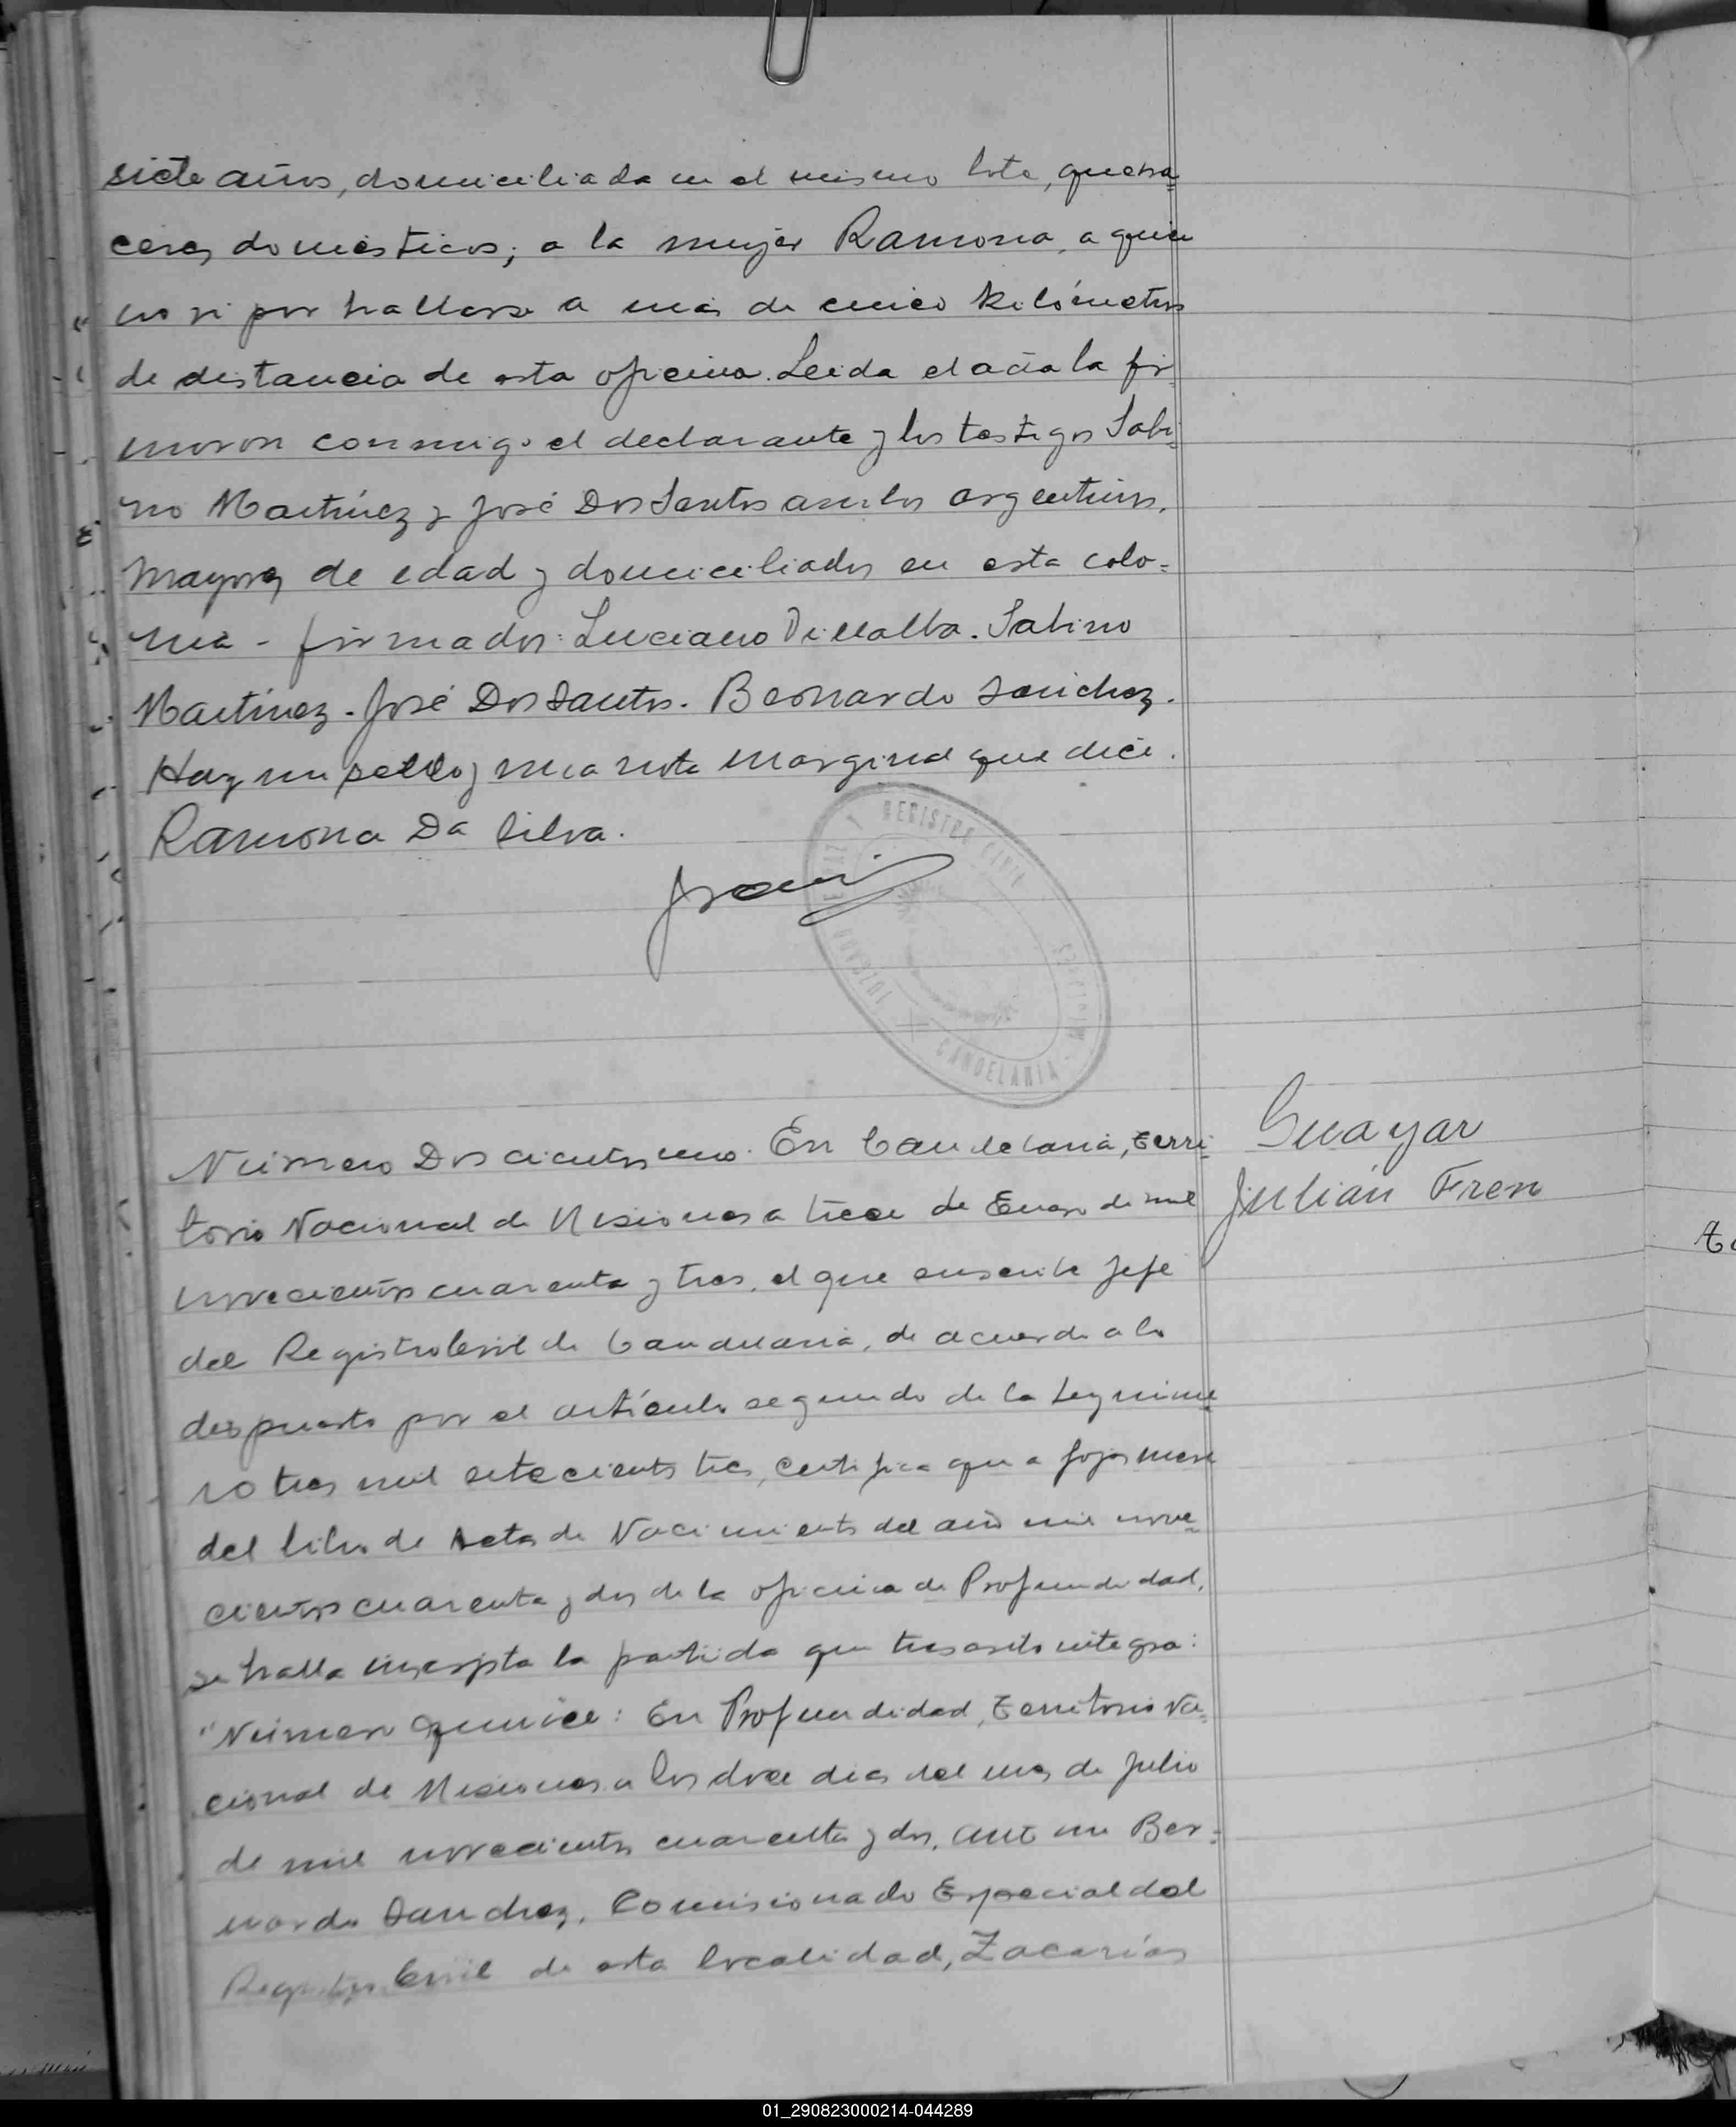 siete años, domiciliada en el mismo lote, queha=
ceres domésticos; a la mujer Ramona, a quien
no vi por hallarse a más de cinco kilómetros
de distancia de esta oficina. Leida el acta la fir
maron conmigo el declarante y los testigos Sabi=
no Martínez y José Dos Santos ambos argentinos,
mayores de edad y domiciliados en esta colo=
nia - firmados: Luciano Villalba. Sabino
Martínez. José Dos Santos. Bernardo Sanchez.
Hay un sello y una nota marginal que dice.
Ramona Da Silva.
REGISTRO CIVIL
JUZGADO DE PAZ Y
CANDELARIA
MISIONES
Número Doscientos uno. En Candelaria, Terri=
torio Nacional de Misiones a trece de Enero de mil
novecientos cuarenta y tres, el que suscribe Jefe
del Registro Civil de Candelaria, de acuerdo a lo
dispuesto por el artículo segundo de la Ley núme
ro tres mil setecientos tres, certifica que a fojas nueve
del libro de Actas de Nacimientos del año mil nove=
cientos cuarenta y dos de la oficina de Profundidad,
se halla inscripta la partida que trascrita integra:
"Número quince: En Profundidad, Territorio Na=
cional de Misiones a los doce dias del mes de Julio
de mil novecientos cuarenta y dos, ante mi Ber=
nardo Sanchez, Comisionado Especial del
Registro Civil de esta localidad, Zacarías
Guayar
Julián Fren
01_290823000214-044289